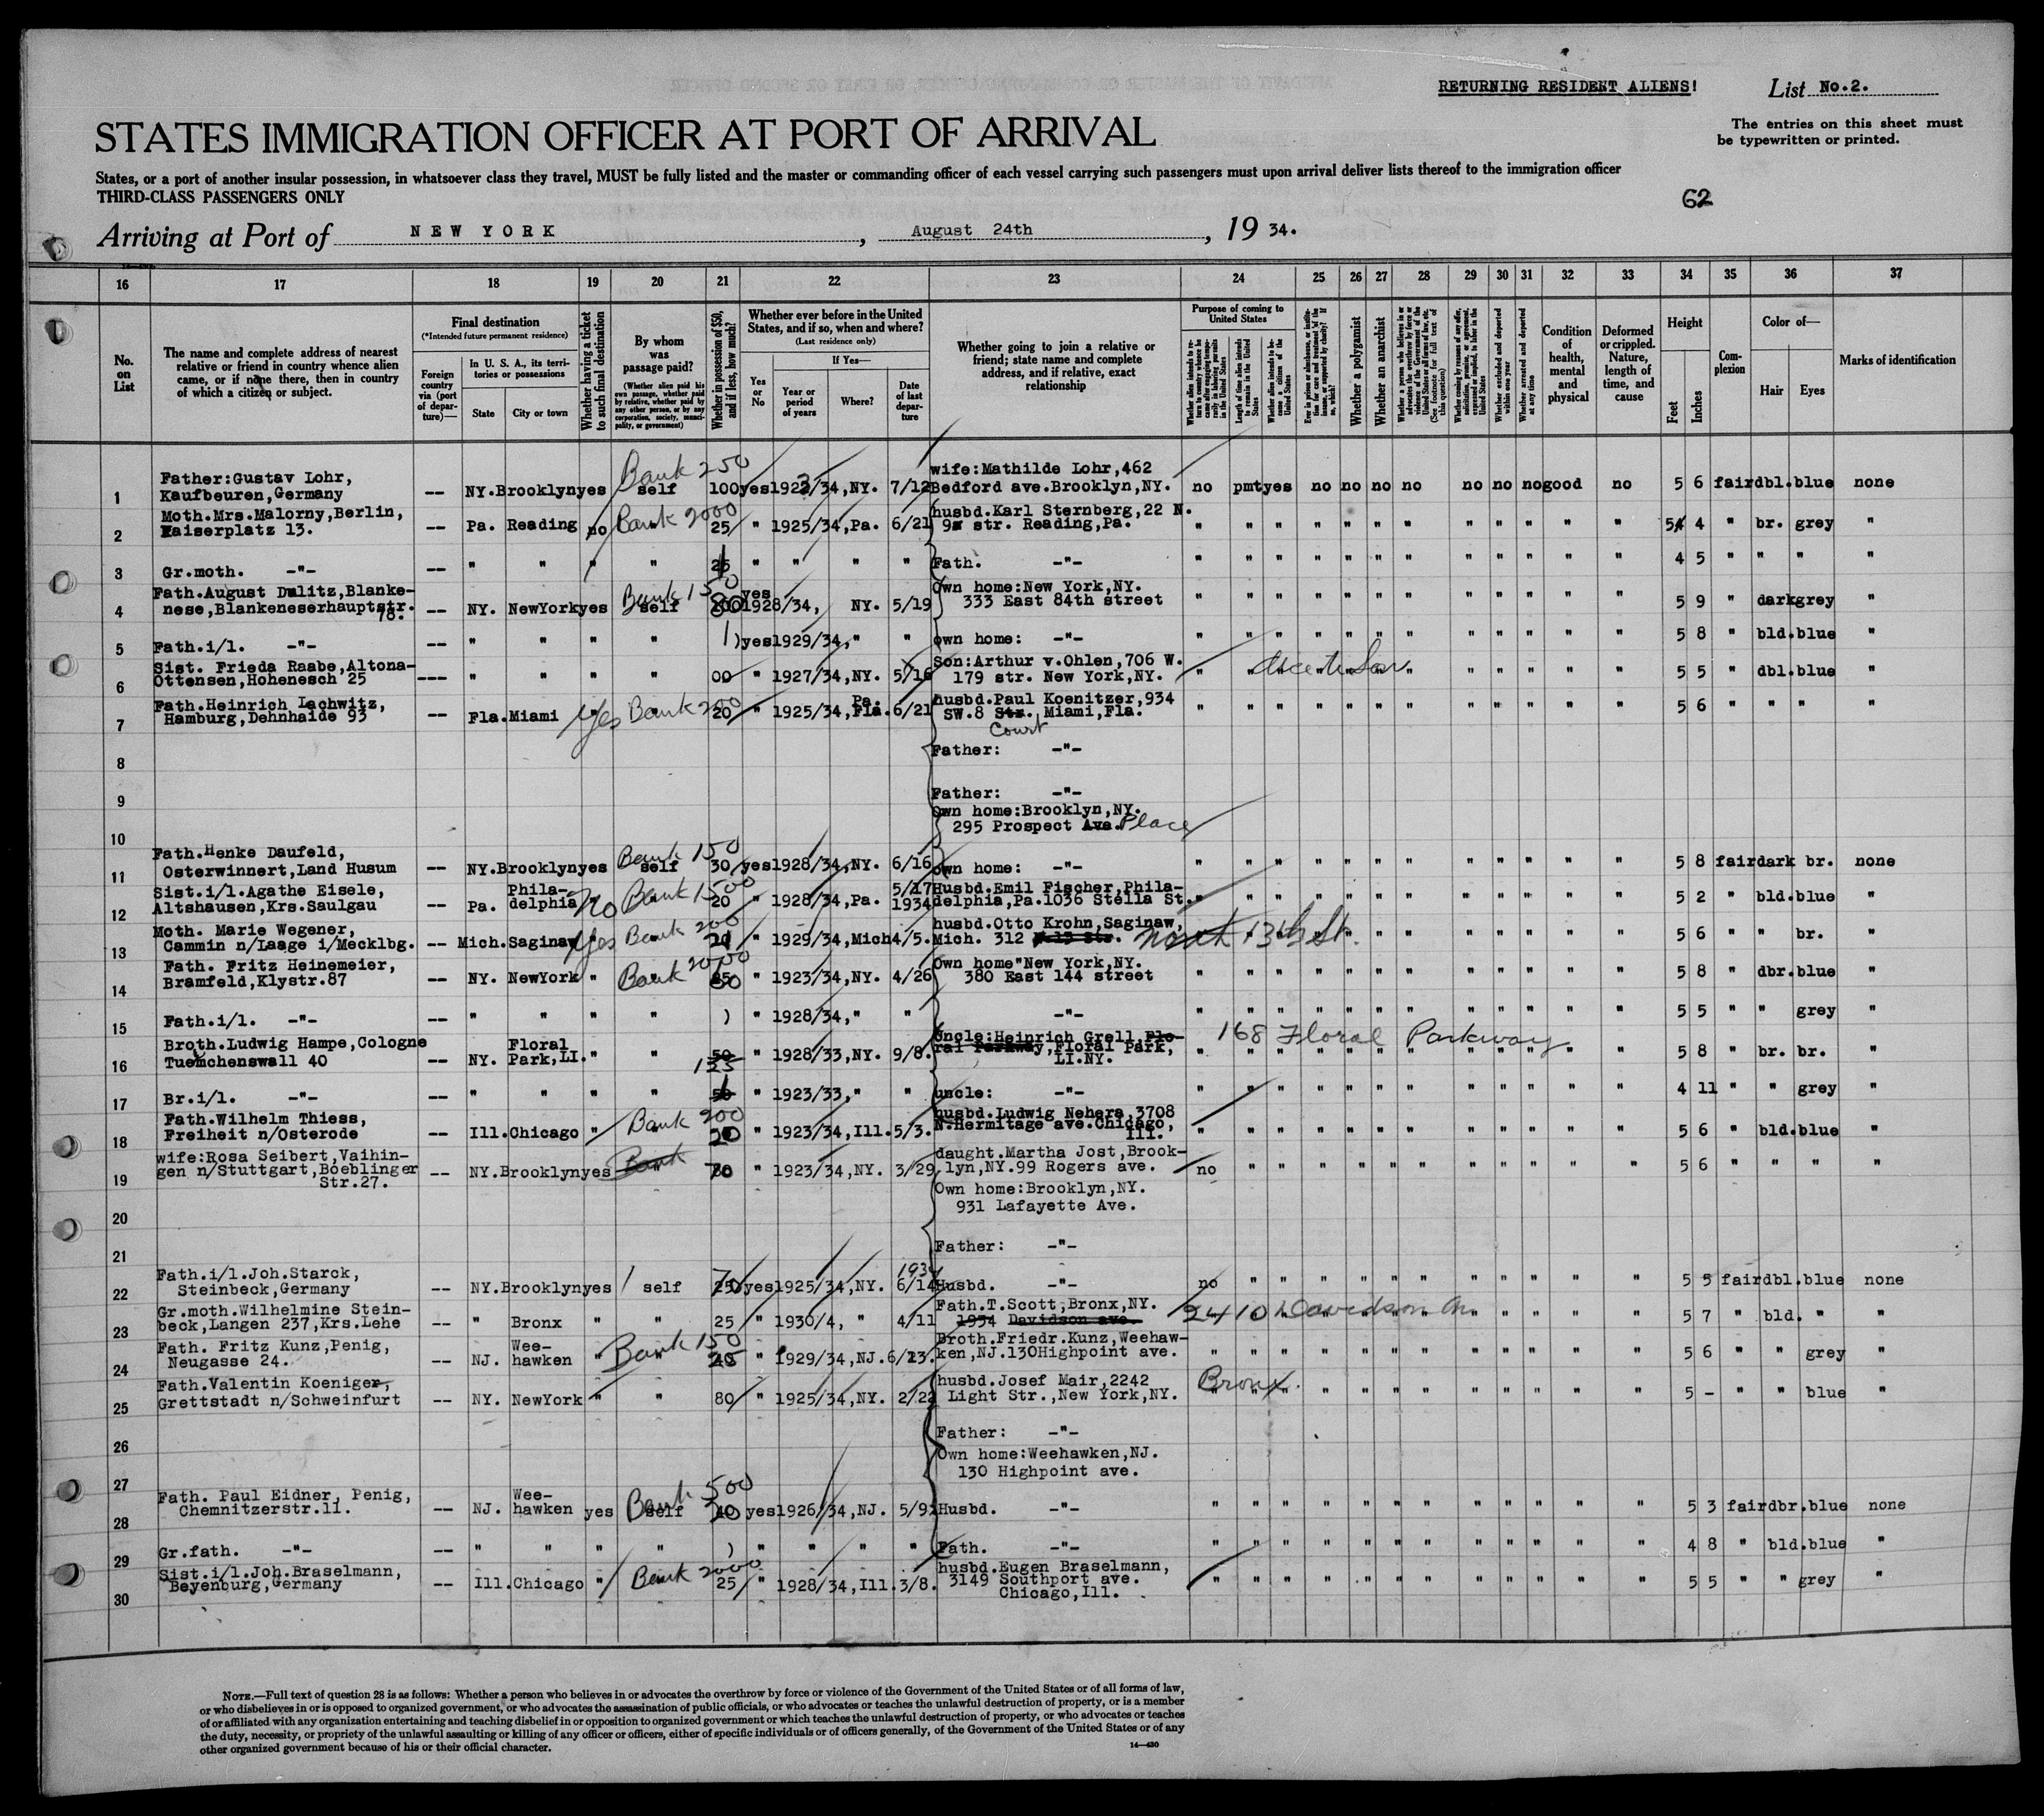 RETURNING RESIDENT ALIENS!
List No.2.
STATES IMMIGRATION OFFICER AT PORT OF ARRIVAL
The entries on this sheet must
be typewritten or printed.
States, or a port of another insular possession, in whatsoever class they travel, MUST be fully listed and the master or commanding officer of each vessel carrying such passengers must upon arrival deliver lists thereof to the immigration officer
THIRD-CLASS PASSENGERS ONLY
62
Arriving at Port of NEW YORK, August 24th, 1934.
16 17 18 19 20 21 22 23 24 25 26 27 28 29 30 31 32 33 34 35 36 37
No. on List
The name and complete address of nearest
relative or friend in country whence alien
came, or if none there, then in country
of which a citizen or subject.
Final destination
(*Intended future permanent residence)
Foreign country via (port of departure)—
In U. S. A., its territories or possessions
State
City or town
Whether having a ticket to such final destination
By whom was passage paid?
(Whether alien paid his own passage, whether paid by relative, whether paid by any other person, or by any corporation, society, municipality, or government)
Whether in possession of $50, and if less, how much?
Whether ever before in the United States, and if so, when and where?
(Last residence only)
Yes or No
If Yes—
Year or period of years
Where?
Date of last departure
Whether going to join a relative or
friend; state name and complete
address, and if relative, exact
relationship
Purpose of coming to United States
Length of time alien intends to remain in the United States
Whether alien intends to become a citizen of the United States
Whether a polygamist
Whether an anarchist
Whether excluded and deported within one year
Whether arrested and deported at any time
Condition of health, mental and physical
Deformed or crippled. Nature, length of time, and cause
Height
Feet
Inches
Complexion
Color of—
Hair
Eyes
Marks of identification
1 Father:Gustav Lohr, Kaufbeuren,Germany -- NY. Brooklyn yes self Bank 250 100 yes 1923/34,NY. 7/12 wife:Mathilde Lohr,462 Bedford ave.Brooklyn,NY. no pmt yes no no no no no no no good no 5 6 fair dbl. blue none
2 Moth.Mrs.Malorny,Berlin, Kaiserplatz 13. -- Pa. Reading no Bank 2000 25 " 1925/34,Pa. 6/21 husbd.Karl Sternberg,22 N. 9 str. Reading,Pa. " " " " " " " " " " " " 5 4 " br. grey "
3 Gr.moth. -"- -- " " " " " " " " Father. -"- " " " " " " " " " " " " 4 5 " " " "
4 Fath.August Dulitz,Blankenese,Blankeneserhauptstr. 78. -- NY. NewYork yes self Bank 150 80 yes 1928/34, NY. 5/19 Own home:New York,NY. 333 East 84th street " " " " " " " " " " " " 5 9 " dark grey "
5 Fath.i/l. -"- -- " " " " ) yes 1929/34," " own home: -"- " " " " " " " " " " " " 5 8 " bld. blue "
6 Sist. Frieda Raabe,Altona-Ottensen,Hohenesch 25 --- " " " " 00 " 1927/34,NY. 5/16 Son:Arthur v.Ohlen,706 W. 179 str. New York,NY. " " " " " " " " " " 5 5 " dbl. blue "
7 Fath.Heinrich Lachwitz, Hamburg,Dehnhaide 93 -- Fla. Miami Yes Bank 200 20 " 1925/34,Pa. Fla. 6/21 husbd.Paul Koenitzer,934 SW.8 Str. Court, Miami,Fla. " " " " " " " " " " " " 5 6 " " " "
8 Father: -"-
9 Father: -"-
10 Own home:Brooklyn,NY. 295 Prospect Ave. Place
11 Fath.Henke Daufeld, Osterwinnert,Land Husum -- NY. Brooklyn yes self Bank 150 30 yes 1928/34,NY. 6/16 own home: -"- " " " " " " " " " " " " 5 8 fair dark br. none
12 Sist.i/l.Agathe Eisele, Altshausen,Krs.Saulgau -- Pa. Philadelphia No Bank 1500 20 " 1928/34,Pa. 5/17 1934 Husbd.Emil Fischer,Philadelphia,Pa.1036 Stella St. " " " " " " " " " " " " 5 2 " bld. blue "
13 Moth. Marie Wegener, Cammin n/Laage i/Mecklbg. -- Mich. Saginaw Yes Bank 200 " 1929/34,Mich 4/5. husbd.Otto Krohn,Saginaw, Mich. 312 N 13 Str. North 13th St. " " " " " " " " 5 6 " " br. "
14 Fath. Fritz Heinemeier, Bramfeld,Klystr.87 -- NY. NewYork " Bank 2000 " 1923/34,NY. 4/26 Own home"New York,NY. 380 East 144 street " " " " " " " " " " " " 5 8 " dbr. blue "
15 Fath.i/l. -"- -- " " " " ) " 1928/34," " -"- " " " " " " " " " " " " 5 5 " " grey "
16 Broth.Ludwig Hampe,Cologne Tuemchenswall 40 -- NY. Floral Park,LI. " " 50 135 " 1928/33,NY. 9/8. Uncle:Heinrich Grell,Floral Parkway,Floral Park, LI.NY. 168 Floral Parkway " " " " " " " " " " " " 5 8 " br. br. "
17 Br.i/l. -"- -- " " " " 50 " 1923/33," " uncle: -"- " " " " " " " " " " " " 4 11 " " grey "
18 Fath.Wilhelm Thiess, Freiheit n/Osterode -- Ill. Chicago " Bank 200 20 " 1923/34,Ill. 5/3. husbd.Ludwig Nehers,3708 N.Hermitage ave.Chicago, Ill. " " " " " " " " " " " " 5 6 " bld. blue "
19 wife:Rosa Seibert,Vaihingen n/Stuttgart,Boeblinger Str.27. -- NY. Brooklyn yes Bank " 70 " 1923/34,NY. 3/29 daught.Martha Jost,Brooklyn,NY.99 Rogers ave. no " " " " " " " " " " " 5 6 " " " "
20 Own home:Brooklyn,NY. 931 Lafayette Ave.
21 Father: -"-
22 Fath.i/l.Joh.Starck, Steinbeck,Germany -- NY. Brooklyn yes self 70 yes 1925/34,NY. 1934 6/14 Husbd. -"- no " " " " " " " " " " " 5 5 fair dbl. blue none
23 Gr.moth.Wilhelmine Steinbeck,Langen 237,Krs.Lehe -- " Bronx " " 25 " 1930/4, " 4/11 Fath.T.Scott,Bronx,NY. 1954 Davidson ave. 2410 Davidson Av " " " " " " 5 7 " bld. " "
24 Fath. Fritz Kunz,Penig, Neugasse 24. -- NJ. Weehawken " Bank 150 " 1929/34,NJ. 6/13. Broth.Friedr.Kunz,Weehawken,NJ.130Highpoint ave. " " " " " " " " " " " " 5 6 " " grey "
25 Fath.Valentin Koeniger, Grettstadt n/Schweinfurt -- NY. NewYork " " 80 " 1925/34,NY. 2/22 husbd.Josef Mair,2242 Light Str.,New York,NY. Bronx. " " " " " " " " " " " " 5 - " " blue "
26 Father: -"-
27 Own home:Weehawken,NJ. 130 Highpoint ave.
28 Fath. Paul Eidner, Penig, Chemnitzerstr.11. -- NJ. Weehawken yes self Bank 500 yes 1926/34,NJ. 5/9. Husbd. -"- " " " " " " " " " " " " 5 3 fair dbr. blue none
29 Gr.fath. -"- -- " " " " ) " " " " Fath. -"- " " " " " " " " " " " " 4 8 " bld. blue "
30 Sist.i/l.Joh.Braselmann, Beyenburg,Germany -- Ill. Chicago " Bank 2000 25 " 1928/34,Ill. 3/8. husbd.Eugen Braselmann, 3149 Southport ave. Chicago,Ill. " " " " " " " " " " " " 5 5 " " grey "
NOTE.—Full text of question 28 is as follows: Whether a person who believes in or advocates the overthrow by force or violence of the Government of the United States or of all forms of law,
or who disbelieves in or is opposed to organized government, or who advocates the assassination of public officials, or who advocates or teaches the unlawful destruction of property, or is a member
of or affiliated with any organization entertaining and teaching disbelief in or opposition to organized government or which teaches the unlawful destruction of property, or who advocates or teaches
the duty, necessity, or propriety of the unlawful assaulting or killing of any officer or officers, either of specific individuals or of officers generally, of the Government of the United States or of any
other organized government because of his or their official character.
14—430